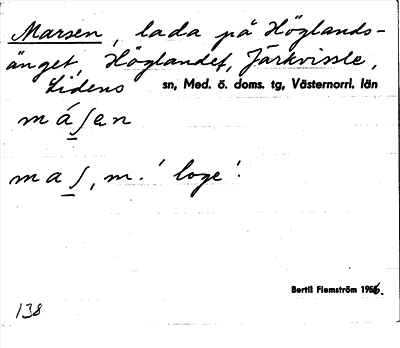 Marsen, lada på Höglands-
änget, Höglandet, Järkvissle,
Lidens sn, Med. ö. doms. tg, Västernorrl. län
máʃen
maʃ, m. 'loge'.
Bertil Flemström 1956.
138